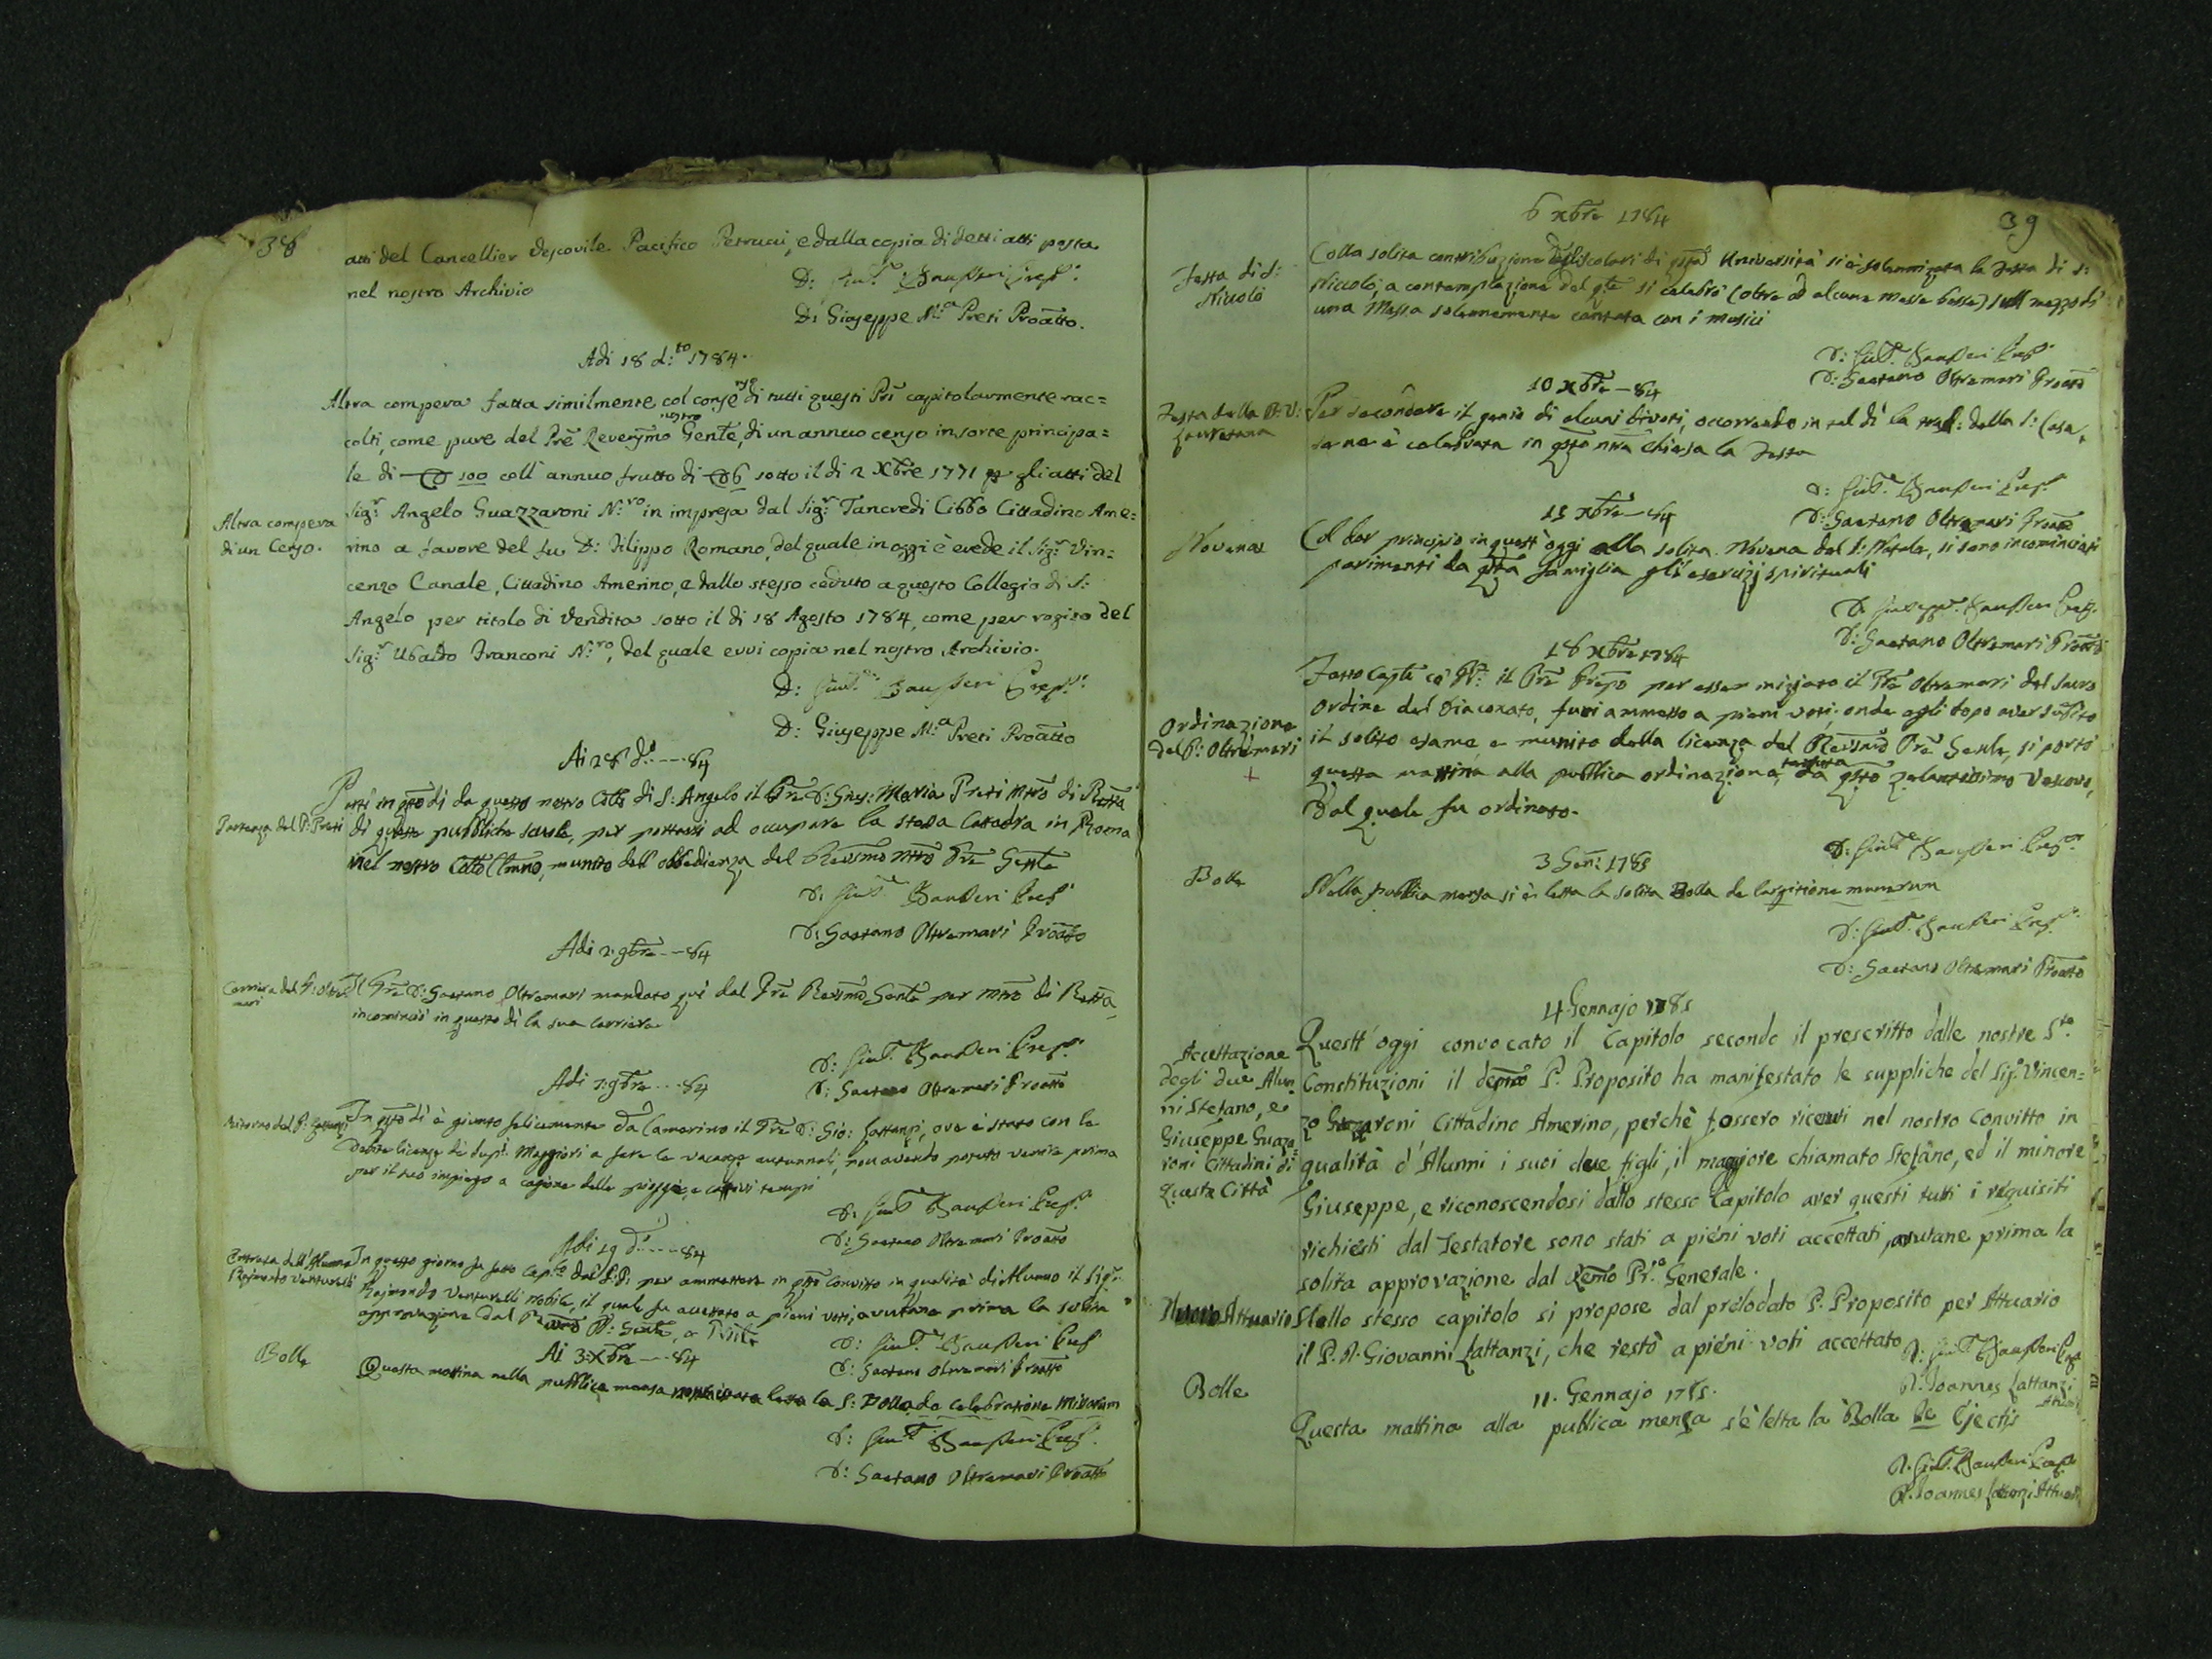 38
atti del Cancellier Vescovile Pacifico Petrucci, e dalla copia di detti atti posta
nel nostro Archivio
D: Giuse: Bausseri Prep:
D: Giuseppe M.a Preti Proatto.
Adi 18 d:to 1784.
Altra compera fatta similmente col conse nso di tutti questi Pri capitolarmente rac=
colti, come pure del Pre Reverymo nostro Gente, di un annuo censo in sorte principa=
le di 100 coll' annuo frutto di 6 sotto il di 2 Xbre 1771 per gli atti del
Altra compera
di un Censo.
Sig.r Angelo Guazzaroni N.ro in impresa dal Sig.r Tancredi Cibbo Cittadino Ame=
rino a favore del fu D: Filippo Romano, del quale in oggi è erede il Sig.r Vin=
cenzo Canale, Cittadino Amerino, e dallo stesso ceduto a questo Collegio di S:
Angelo per titolo di Vendita sotto il di 18 Agosto 1784, come per rogito del
Sig.r Ubaldo Franconi N.ro, del quale evvi copia nel nostro Archivio.
D: Bausseri Prep:
D: Giuseppe M.a Preti Proatto
Ai 28 d.o --- 84
Partì in qto di da questo nostro Collo di S: Angelo il Pre D: Gius: Maria Preti Mro di Retta
Partenza del P: Preti
di queste pubbliche scuole, per portarsi ad occupare la stessa Cattedra in Roma
nel nostro Collo Clmno, munito dell' obbedienza del Revsmo nro Pre Gente
D: Bausseri Prep
D: Gaetano Oltremari Proatto
Adi 2: 9bre -- 84
Carriera del P: Oltre
mari
Il Pre D: Gaetano Oltremari mandato quì dal Pre Revsmo Gente per Mro di Retta,
incominciò in questo dì la sua carriera
D: Bausseri Prep:
D: Gaetano Oltremari Proatto
Adi 7: 9bre --- 84
Ritorno del P: Lattanzi
In qto dì è giunto felicemente da Camerino il Pre D: Gio: Lattanzi, ove è stato con le
debite licenze di Supi Maggiori a fare le vacanze autunnali, non avendo potuto venire prima
per il suo impiego a cagione delle piogge, e cattivi tempi
D: Bausseri Prep:
D: Gaetano Oltremari Proatto
Adi 19 d.o --- 84
Entrata dell' Alunno
Rajmondo Venturelli
In questo giorno fu fatto Cap.lo dal P.P. per ammettere in qto Convitto in qualità di Alunno il Sig.r
Rajmondo Venturelli Nobile, il quale fu accettato a pieni voti, avutane prima la solita
approvazione dal Rmo P: Gente,
D: Bausseri Prep
D: Gaetano Oltremari Proatto
Ai 3: Xbre --- 84
Bolle
Questa mattina nella pubblica mensa letta la S: Bolla de Celebratione Missarum
D: Bausseri Prep.
D: Gaetano Oltremari Proatto
39
6 Xbre 1784
Festa di S:
Niccolò
Colla solita contribuzione degli Scolari di qta Università si è solennizata la Festa di S:
Niccolò; a contemplazione del qle si celebrò (oltre ad alcune Messe basse) sull mezzodì
una Messa solennemente cantata con i Musici
D: Bausseri Prep.
D: Gaetano Oltremari Proatto
10 Xbre -- 84
Festa della B.V:
Lauretana
Per secondare il genio di alcuni divoti, occorrendo in tal dì la trasl: della S: Casa,
se ne è celebrata in qta nra chiesa la Festa
D: Bausseri Prep.
D: Gaetano Oltremari Proatto
15 Xbre -- 84
Novena
Col dar principio in quest' oggi alla solita Novena del S: Natale, si sono incominciati
parimenti da qta famiglia gli esercizj spirituali
D: Giusepp. Bausseri Prep.
D: Gaetano Oltremari Proatto
18 Xbre 1784
Ordinazione
del P: Oltremari
+
Fatto Caplo il Pre Prepo per esser iniziato il Pre Oltremari del Sacro
Ordine del Diaconato, fu ammesso a pieni voti, onde egli dopo aver subito
il solito esame e munito della licenza del Revsmo Pre Genle, si portò
questa mattina alla pubblica ordinazione tenuta da qsto zelantissimo Vescovo,
dal quale fu ordinato.
D: Bausseri Prep.
3 Gen: 1785
Bolle
Nella publica mensa si è letta la solita Bolla de largitione munerum
D: Bausseri Prep.
D: Gaetano Oltremari Proatto
4 Gennajo 1785
Accettazione
degli due Alun
ni Stefano, e
Giuseppe Guaza
roni Cittadini di
questa Città
Quest' oggi convocato il Capitolo secondo il prescritto dalle nostre S.te
Constituzioni il degmo P. Proposito ha manifestato le suppliche del Sig.r Vincen=
zo Guazaroni Cittadino Amerino, perchè fossero ricevuti nel nostro Convitto in
qualità d' Alunni i suoi due figli, il maggiore chiamato Stefano, ed il minore
Giuseppe, e riconoscendosi dallo stesso Capitolo aver questi tutti i requisiti
richiesti dal Testatore sono stati a pieni voti accettati, avutane prima la
solita approvazione dal Remo Pr.e Generale.
Nuovo Attuario
Nello stesso capitolo si propose dal prelodato P. Proposito per Attuario
il P. D. Giovanni Lattanzi, che restò a pieni voti accettato
D: Bausseri Prep
D. Joannes Lattanzi
Attuario
11. Gennajo 1785.
Bolle
Questa mattina alla publica mensa s'è letta la Bolla De Ejectis
D. Bausseri Prep
D. Joannes Lattanzi Attuari